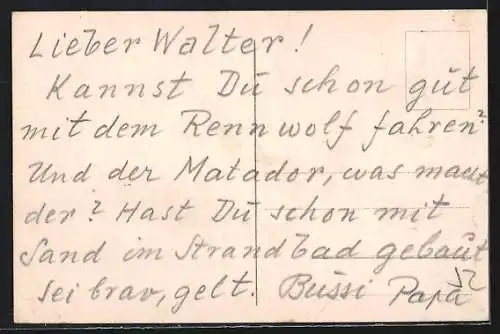 Lieber Walter!
Kannst Du schon gut
mit dem Rennwolf fahren?
Und der Matador, was macht
der? Hast Du schon mit
Sand im Strandbad gebaut
sei brav, gelt. Bussi Papa